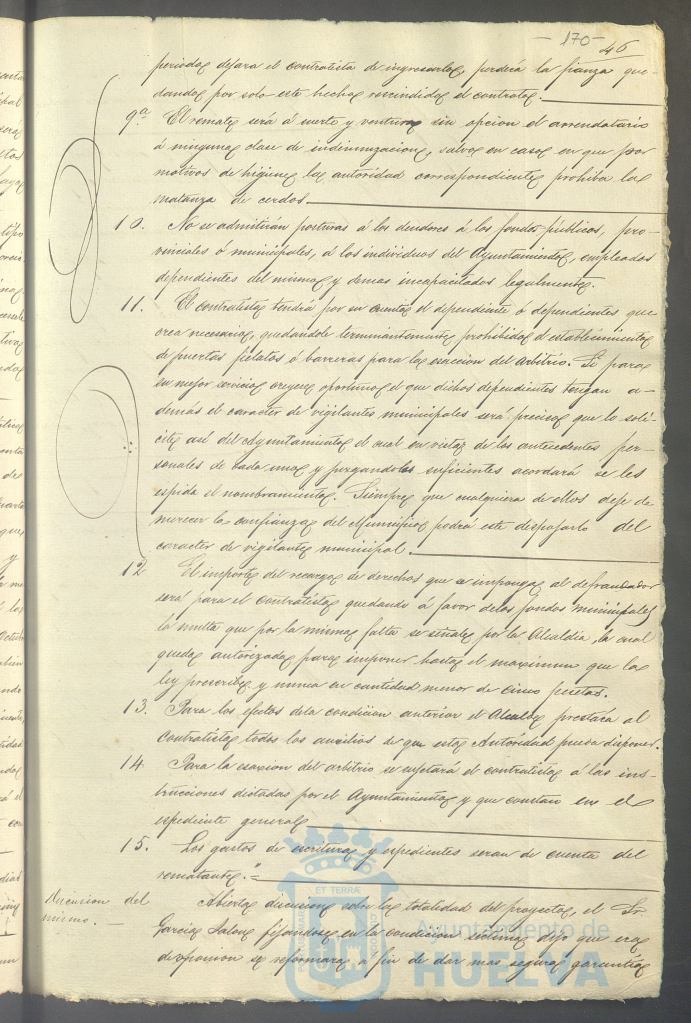 -170-
46
periodos dejara el contratista de ingresarlos, perderá la fianza que-
dando por solo este hecho rescindido el contrato.
9ª El remate será á suerte y ventura sin opcion el arrendatario
á ninguna clase de indemnizacion, salvo en caso en que por
motivos de higiene la autoridad correspondiente prohiba la
matanza de cerdos.
10. No se admitirán posturas á los deudores á los fondos públicos, pro-
vinciales ó municipales, á los individuos del Ayuntamiento, empleados
dependientes del mismo y demas incapacitados legalmente.
11. El contratista tendrá por su cuenta el dependiente ó dependientes que
crea necesarios, quedandole terminantemente prohibido el establecimiento
de puertas fielatos ó barreras para la exaccion del arbitrio. Si para
su mejor servicio creyere oportuno el que dichos dependientes tengan a-
demás el caracter de vigilantes municipales será preciso que lo soli-
cite así del Ayuntamiento el cual en vista de los antecedentes per-
sonales de cada uno y juzgandolos suficientes acordará se les
espida el nombramiento. Siempre que cualquiera de ellos deje de
merecer la confianza del Municipio podrá este despojarlo del
caracter de vigilante municipal.
12 El importe del recargo de derechos que se imponga al defraudador
será para el contratista quedando á favor de los fondos municipales
la multa que por la misma falta se señale por la Alcaldia, la cual
queda autorizada para imponer hasta el maximum que la
ley prescribe y nunca en cantidad menor de cinco pesetas.
13. Para los efectos dela condicion anterior el Alcalde prestará al
contratista todos los auxilios de que esta Autoridad pueda disponer.
14 Para la exaccion del arbitrio se sujetará el contratista á las ins-
trucciones dictadas por el Ayuntamiento y que constan en el
espediente general
15. Los gastos de escritura y espedientes seran de cuenta del
rematante."
Discusion del
mismo.
Abierta discusion sobre la totalidad del proyecto, el Sr
Garcia Jalon fijandose en la condicion séctima dijo que era
de opinion se reformara á fin de dar mas segura garantia
ET TERRÆ
Ayuntamiento de
HUELVA